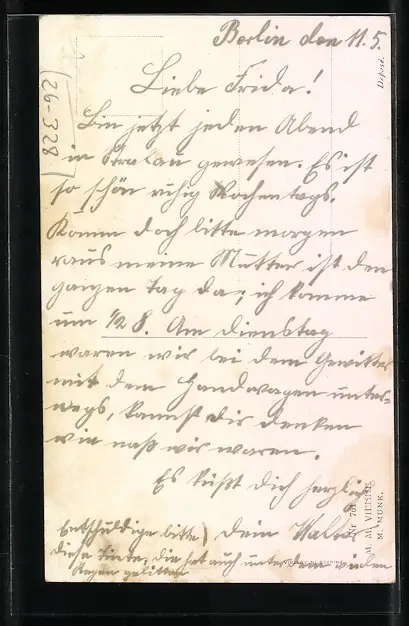 Berlin den 11.5.
Liebe Frida!
Bin jetzt jeden Abend
in Stralau gewesen. Es ist
so schön ruhig Wochentags.
Komm doch bitte morgen
raus meine Mutter ist den
ganzen Tag da; ich komme
um 1/2 8. Am Dienstag
waren wir bei dem Gewitter
mit dem Handwagen unter-
wegs, kannst dir denken
wie naß wir waren.
Es küßt Dich herzlich
dein Walter
(Entschuldige bitte
diese Tinte, die hat auch unter dem vielen
Regen gelitten
(26-328)
Depose.
M. M. VIENNE
M. MUNK.